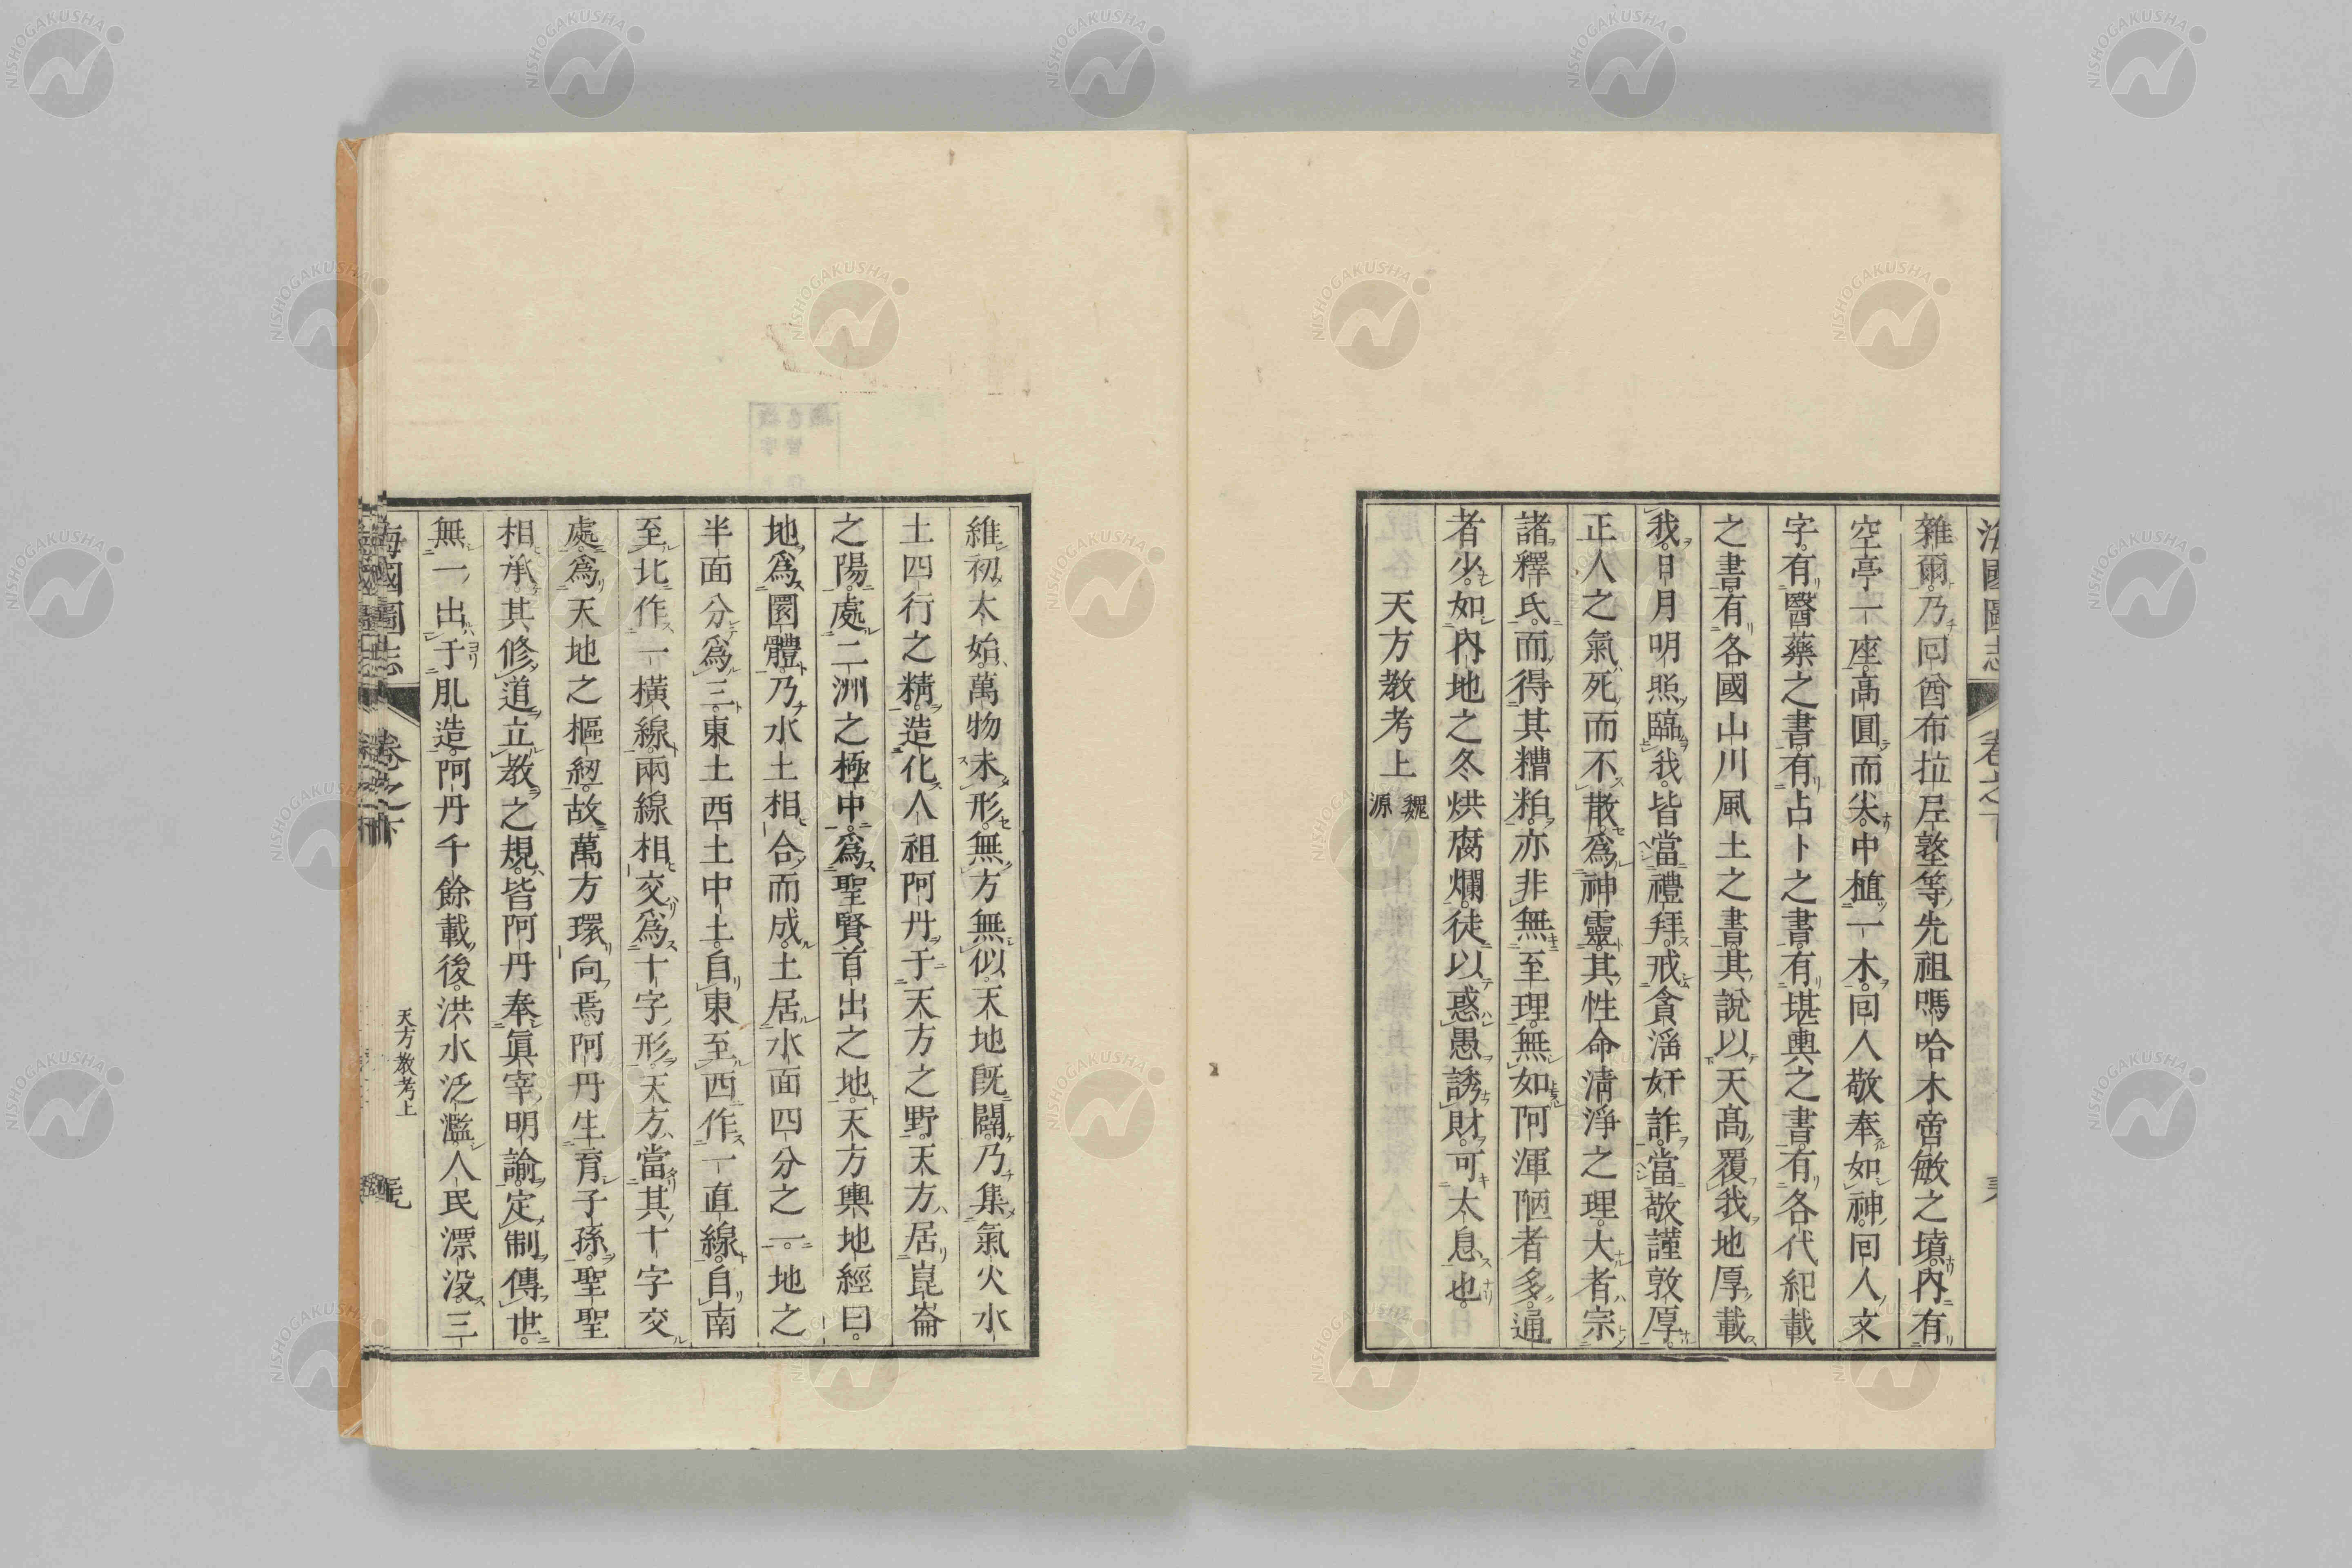 雜爾乃回酋布拉尼敦等先祖嗎哈木帝敏之墳內有
空亭一座高圓而尖中植一木回人敬奉如神回人文
字有醫藥之書有占卜之書有堪輿之書有各代紀載
之書有各國山川風土之書其說以天高覆我地厚載
我日月明照臨我皆當禮拜戒貪淫奸詐當敬謹敦厚
正人之氣死而不散為神靈其性命清淨之理大者宗
諸釋氏而得其糟粕亦非無至理無如阿渾陋者多通
者少如內地之冬烘腐爛徒以惑愚誘財可太息也
天方教考上 魏源
維初太始萬物未形無方無似天地既闢乃集氣火水
土四行之精造化人祖阿丹于天方之野天方居崑崙
之陽處二洲之極中為聖賢首出之地天方輿地經曰
地為圜體乃水土相合而成土居水面四分之一地之
半面分為三東土西土中土自東至西作一直線自南
至北作一橫線兩線相交為十字形天方當其十字交
處為天地之樞紐故萬方環向焉阿丹生育子孫聖聖
相承其修道立教之規皆阿丹奉眞宰明諭定制傳世
無一出于肊造阿丹千餘載後洪水泛濫人民漂沒三
海國圖志 卷之下 天方教考上
NISHOGAKUSHA